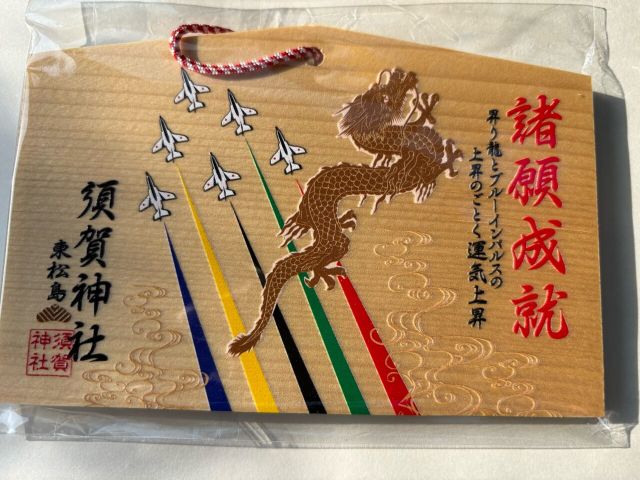 諸願成就
昇り龍とブルーインパルスの
上昇のごとく運気上昇
須賀神社
東松島
須賀
神社